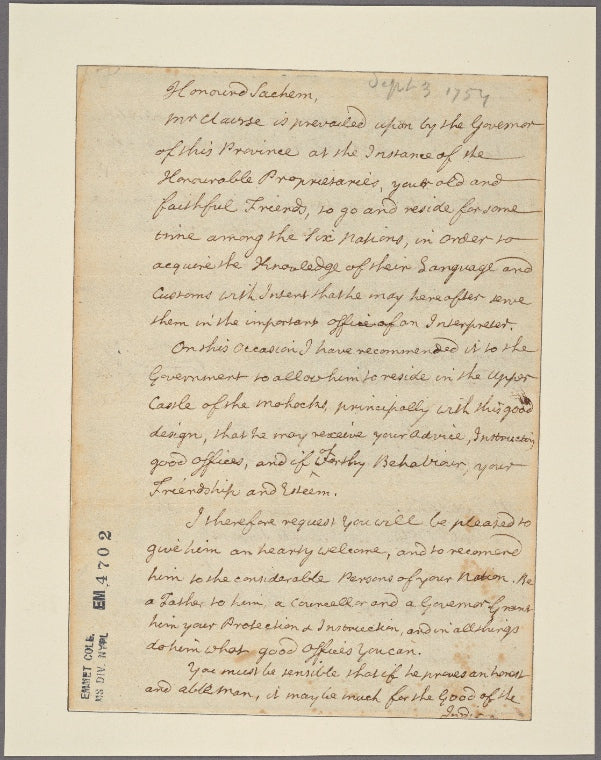 Sept 3 1754
Honourd Sachem,
Mr Clausse is prevailed upon by the Governor
of this Province at the Instance of the
Honourable Proprietaries, your old and
faithful Friends, to go and reside for some
time among the Six Nations, in Order to
acquire the Knowledge of their Language and
Customs with Intent that he may hereafter serve
them in the important office of an Interpreter.
On this Occasion I have recommended it to the
Government to allow him to reside in the Upper
Castle of the Mohocks, principally with this good
design, that he may receive your Advice, Instruction,
good offices, and if Worthy Behaviour, your
Friendship and Esteem.
I therefore request You will be pleased to
give him an hearty welcome, and to recomend
him to the considarable Persons of your Nation. Be
a Father to him, a Councellor and a Governor Grant
him your Protection & Instruction, and in all things
do him what good Offices You can.
You must be sensible that if he proves an honest
and able man, it may be much for the Good of the
EMMET COLL.
MS DIV. NYPL
EM 4702